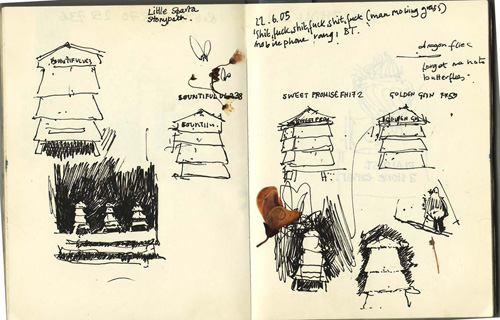 Little Sparta
Stonypath.
BOUNTIFUL
BOUNTIFUL
22.6.05
'shit, fuck, shit, fuck, shit, fuck (man mowing grass)
mobile phone rang, BT.
dragon flies
forget me nots
butterflies.
SWEET PROMISE FH172
GOLDEN GAIN FR59